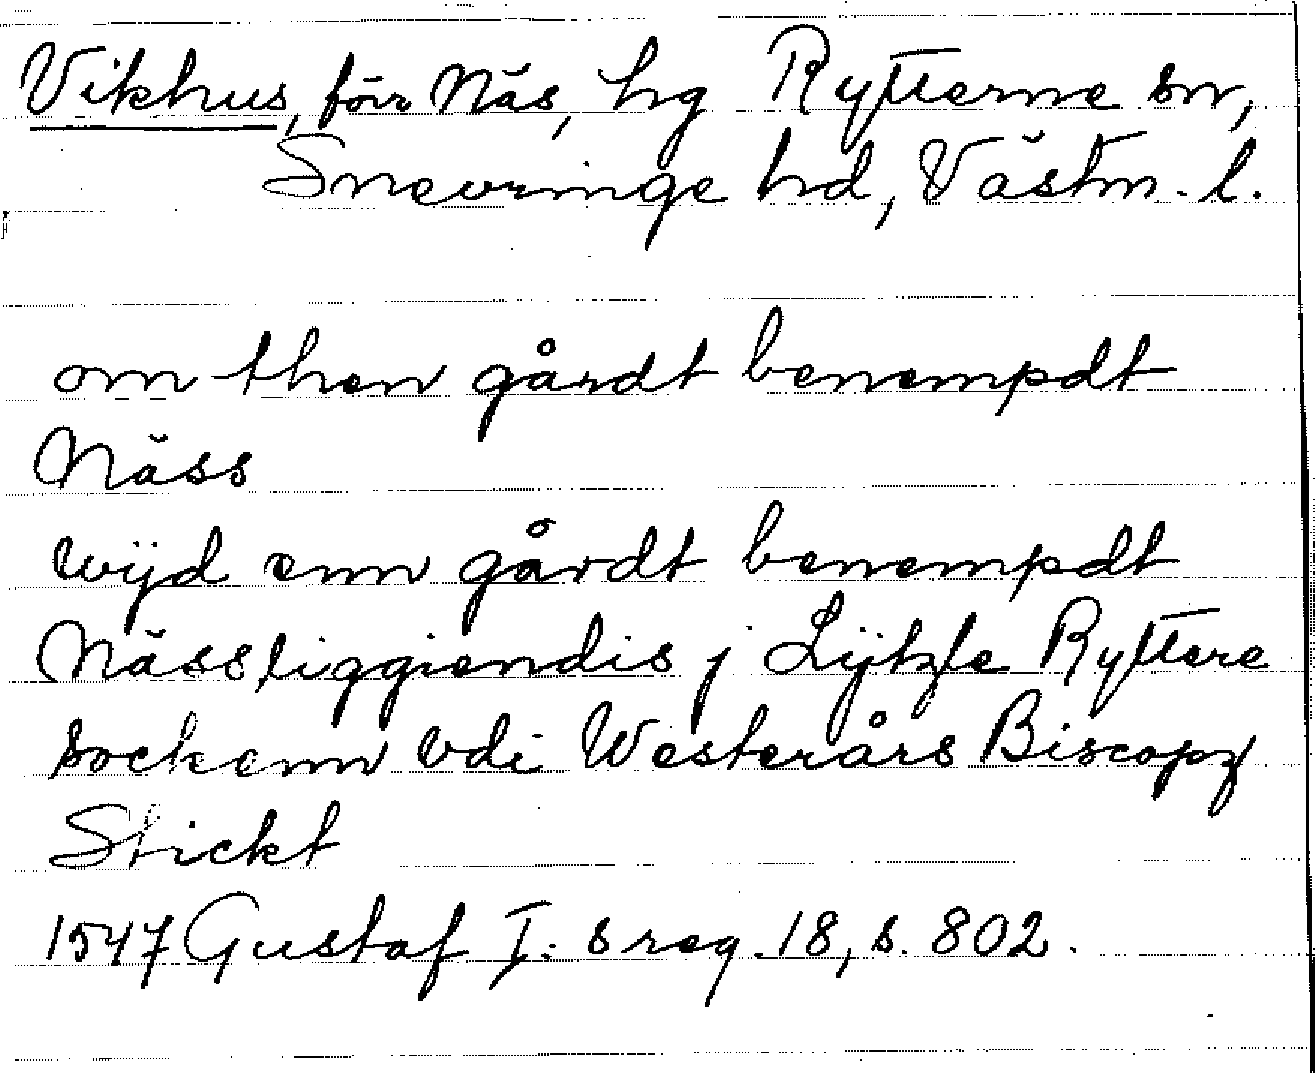 Vikhus, förr Näs, hg Rytterne sn,
Snevringe hd, Västm. l.
om then gårdt benempdt
Näss
wijd enn gårdt benempdt
Näss liggiendis j Lijtzle Ryttere
sockenn vdi Westerårs Biscopz
Stickt
1547 Gustaf I:s reg. 18, s. 802.